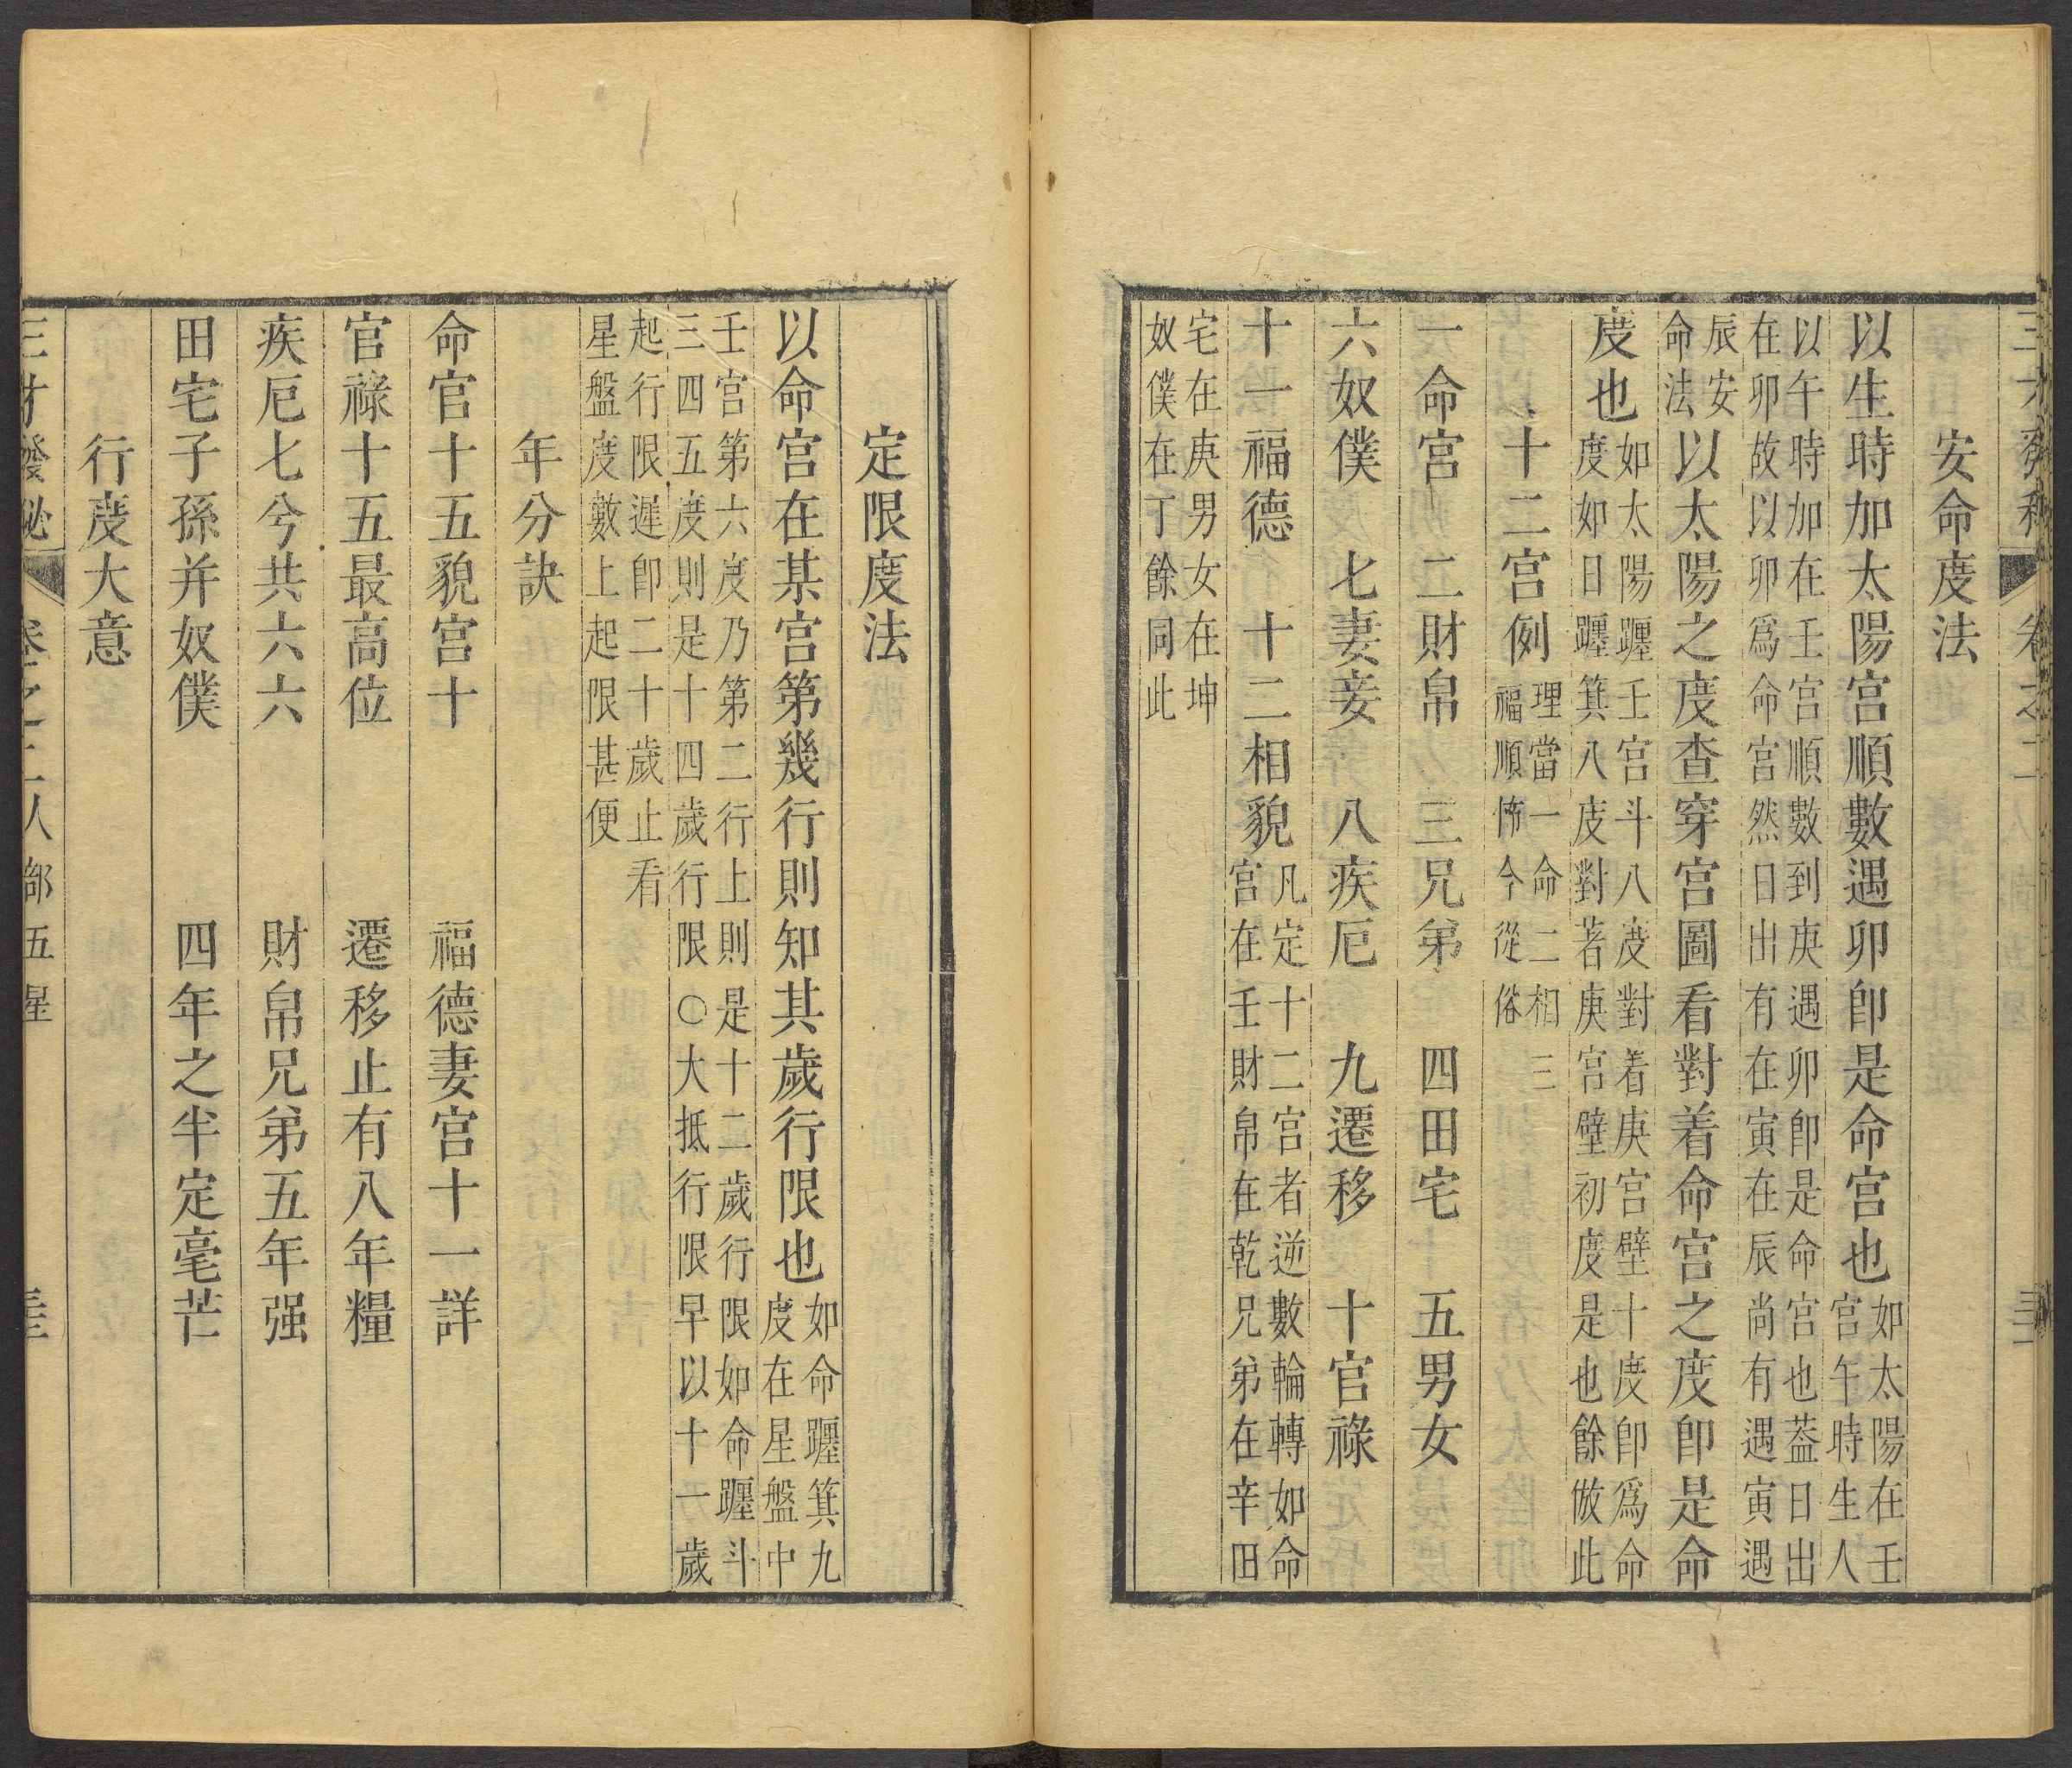 安命度法
以生時加太陽宮順數遇卯卽是命宮也如太陽在壬宮午時生人
以午時加在壬宮順數到庚遇卯卽是命宮也葢日出
在卯故以卯爲命宮然日出有在寅在辰尚有遇寅遇
辰安命法以太陽之度查穿宮圖看對着命宮之度卽是命
度也如太陽躔壬宮斗八度對着庚宮壁十度卽爲命度如日躔箕八度對著庚宮壁初度是也餘倣此
十二宮例理當一命二相三福順佈今從俗
一命宮　二財帛　三兄弟　四田宅　五男女
六奴僕　七妻妾　八疾厄　九遷移　十官祿
十一福德　十二相貌凡定十二宮者逆數輪轉如命宮在壬財帛在乾兄弟在辛田
宅在庚男女在坤
奴僕在丁餘同此
定限度法
以命宮在某宮第幾行則知其歲行限也如命躔箕九度在星盤中
壬宮第六度乃第二行上則是十二歲行限如命躔斗
三四五度則是十四歲行限○大抵行限早以十一歲
起行限遲卽二十歲止看
星盤度數上起限甚便
年分訣
命官十五貌宮十　福德妻宮十一詳
官祿十五最高位　遷移止有八年糧
疾厄七兮共六六　財帛兄弟五年强
田宅子孫并奴僕　四年之半定毫芒
行度大意
三才發秘　卷之二人部五星